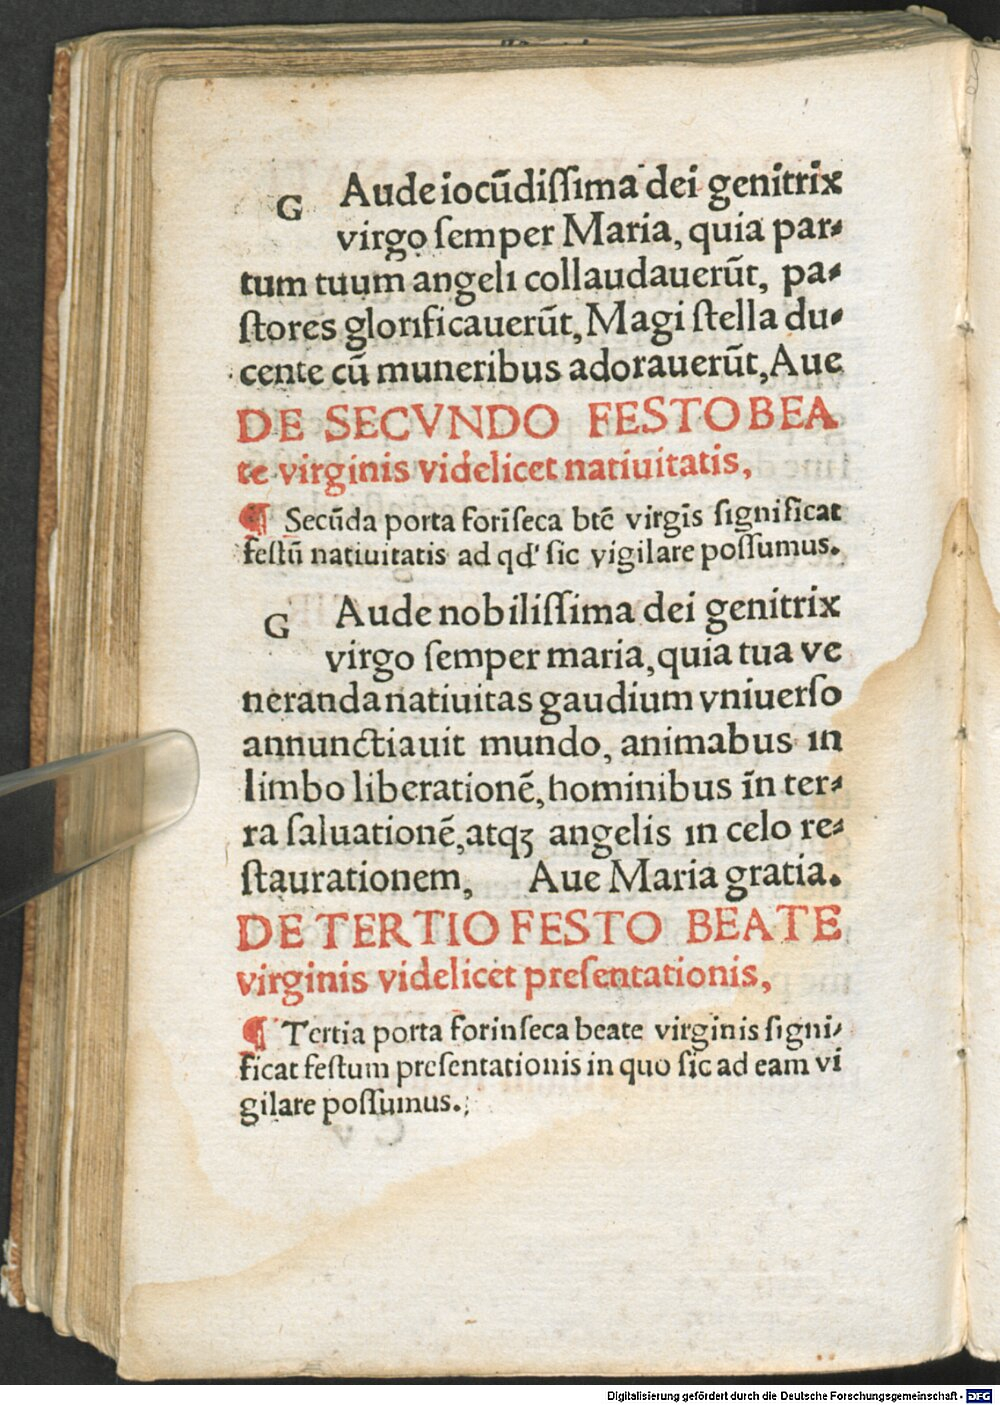 G Aude iocūdiſſima dei genitrix
virgo ſemper Maria, quia par⸗
tum tuum angeli collaudauerūt, pa⸗
ſtores glorificauerūt, Magi ſtella du⸗
cente cū muneribus adorauerūt, Aue
DE SECVNDO FESTO BEA
te virginis videlicet natiuitatis,
¶ Secūda porta forīſeca btē virgīs ſignificat
feſtū natiuitatis ad qd' ſic vigilare poſſumus.
G Aude nobiliſſima dei genitrix
virgo ſemper maria, quia tua ve
neranda natiuitas gaudium vniuerſo
annunctiauit mundo, animabus in
limbo liberationē, hominibus īn ter⸗
ra ſaluationē, atqꝫ angelis in celo re⸗
ſtaurationem, Aue Maria gratia.
DE TERTIO FESTO BEATE
virginis videlicet preſentationis,
¶ Tertia porta forinſeca beate virginis ſigni⸗
ficat feſtum preſentationis in quo ſic ad eam vi
gilare poſſumus.;
Digitalisierung gefördert durch die Deutsche Forschungsgemeinschaft - DFG